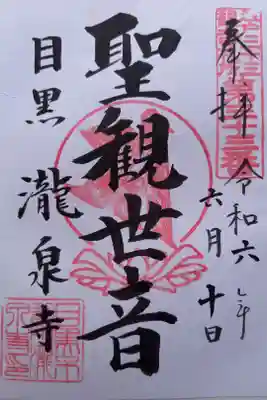 奉拝
令和六年
六月十日
聖観世音
目黒
瀧泉寺